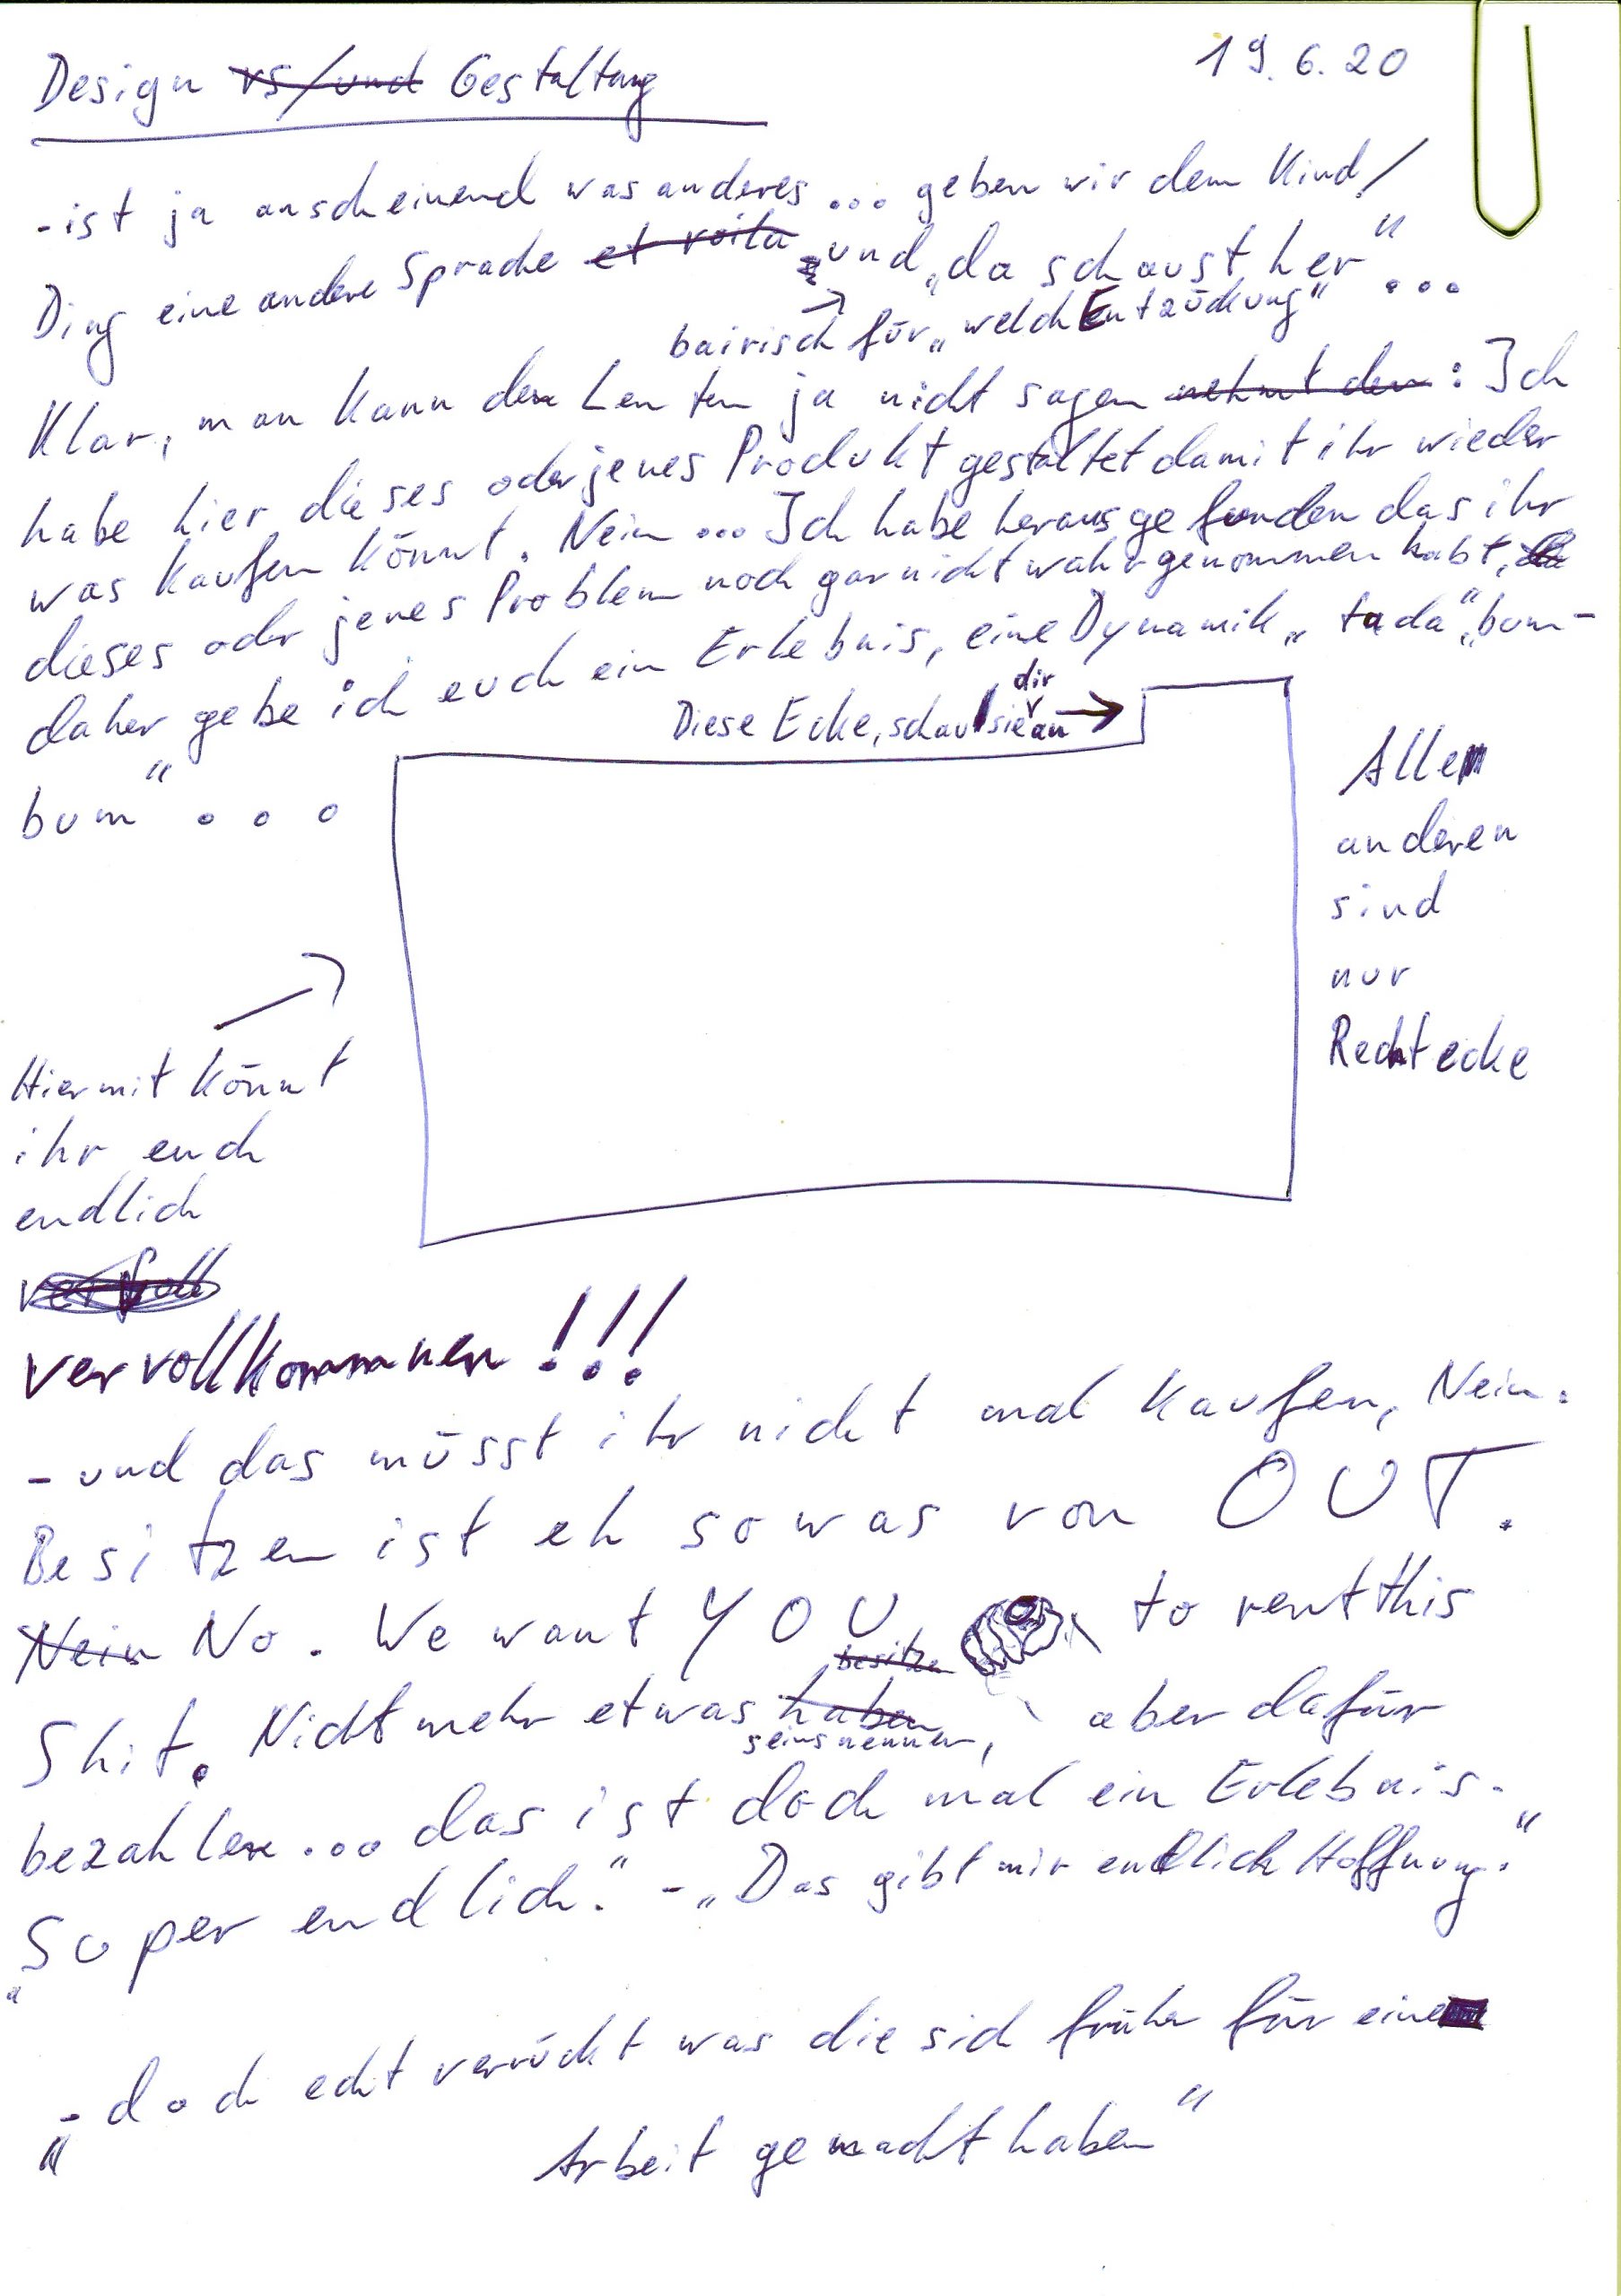 19.6.20
Design vs/und Gestaltung
-ist ja anscheinend was anderes... geben wir dem Kind/
Ding eine andere Sprache et voila und „da schaust her“...
bairisch für „welch Entzückung“
Klar, man kann den Leuten ja nicht sagen nehmt den: Ich
habe hier dieses oder jenes Produkt gestaltet damit ihr wieder
was kaufen könnt. Nein... Ich habe herausgefunden das ihr
dieses oder jenes Problem noch gar nicht wahrgenommen habt,
daher gebe ich euch ein Erlebnis, eine Dynamik „tada“, „bum-
bum“...
Diese Ecke, schau sie dir an →
Alle
anderen
sind
nur
Rechtecke
Hiermit könnt
ihr euch
endlich
vervoll
vervollkommnen!!!
- und das müsst ihr nicht mal kaufen, Nein.
Besitzen ist eh sowas von OUT.
Nein No. We want YOU to rent this
besitzen
Shit. Nicht mehr etwas haben, aber dafür
seins nennen,
bezahlen... das ist doch mal ein Erlebnis.
„Super endlich.“ - „Das gibt mir endlich Hoffnung.“
„- doch echt verrückt was die sich früher für eine
Arbeit gemacht haben“